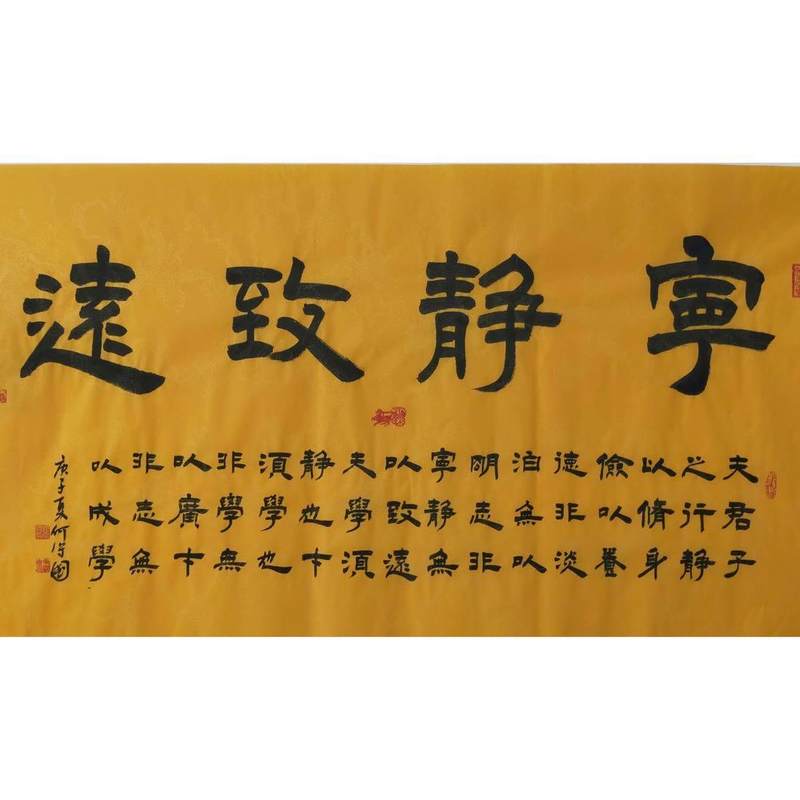 寧静致遠
夫君子
之行静
以脩身
儉以養
德非淡
泊無以
明志非
寧静無
以致遠
夫學湏
静也才
湏學也
非學無
以廣才
非志無
以成學
庚子夏何